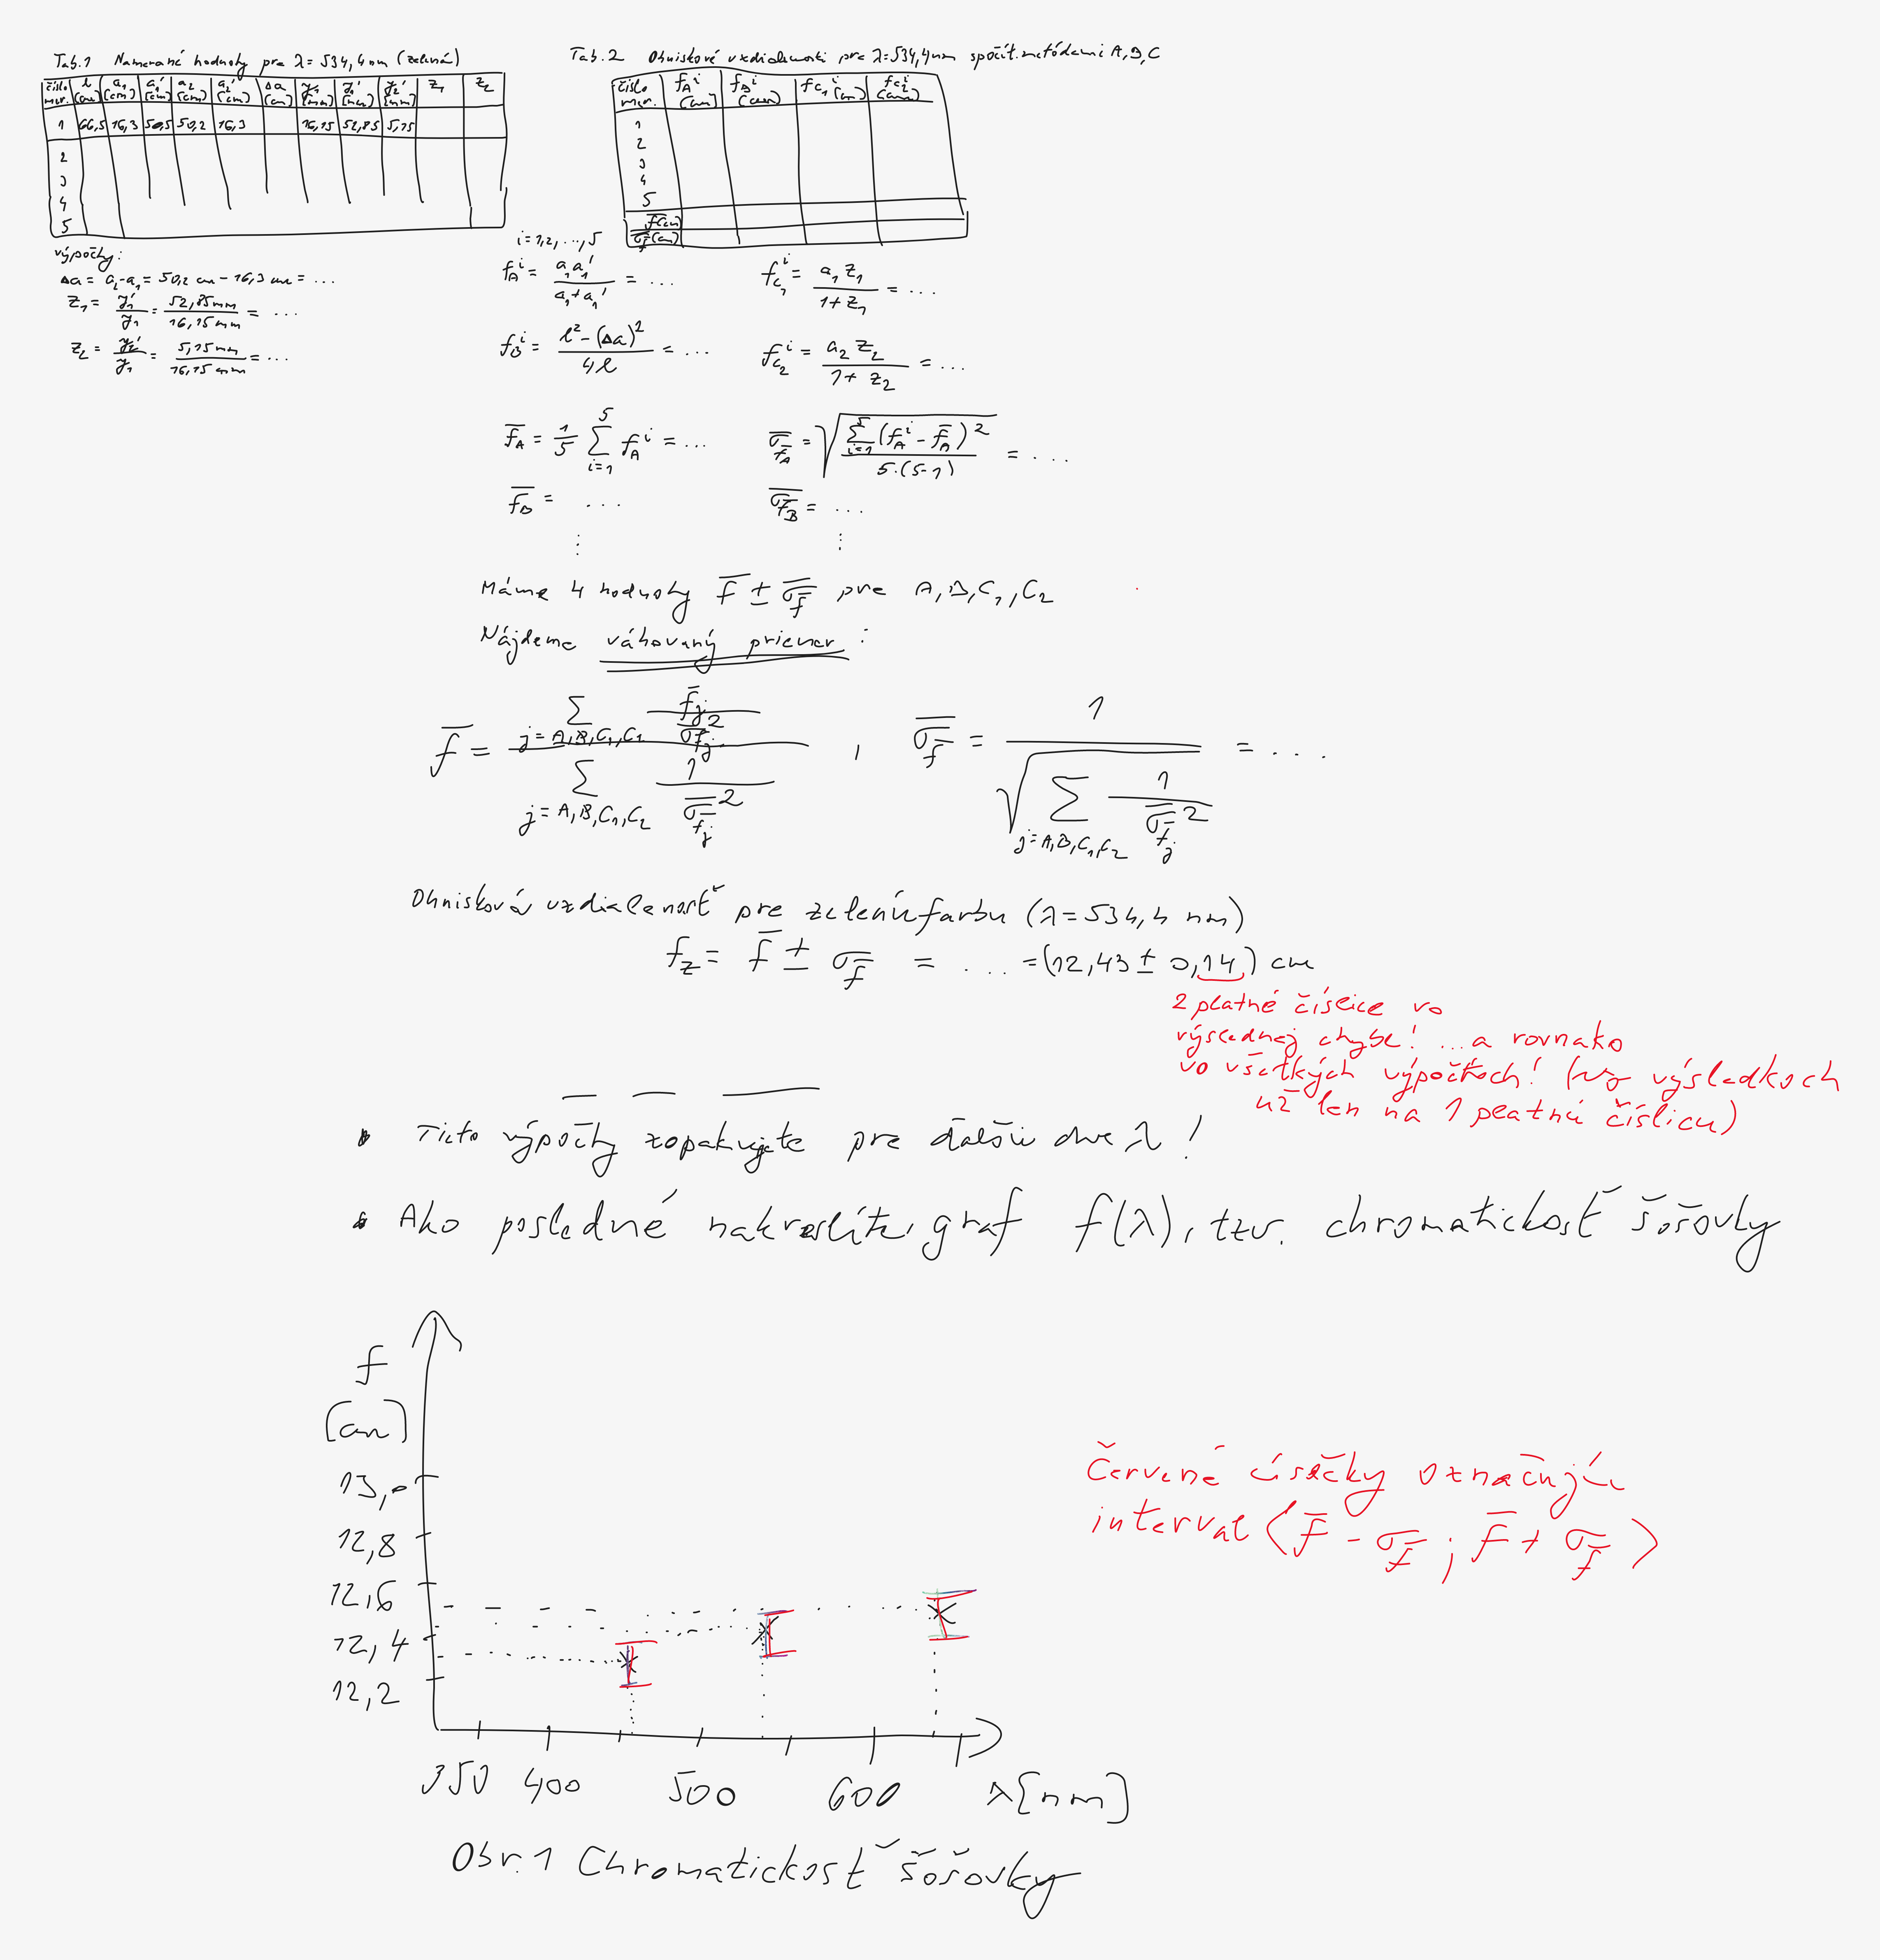 Tab.1 Namerané hodnoty pre λ = 534,4 nm (zelená)
číslo mer. l (cm) a₁ (cm) a₁' (cm) a₂ (cm) a₂' (cm) Δa (cm) y₁ (mm) y₁' (mm) y₂' (mm) z₁ z₂
1 66,5 16,3 50,5 50,2 16,3 16,15 52,85 5,15
2
3
4
5
výpočty:
Δa = a₂-a₁ = 50,2 cm - 16,3 cm = ...
z₁ = y₁'/y₁ = 52,85mm/16,15mm = ...
z₂ = y₂'/y₁ = 5,15mm/16,15mm = ...
Tab.2 Ohniskové vzdialenosti pre λ=534,4nm spočít. metódami A,B,C
číslo mer. f_A^i (cm) f_B^i (cm) f_C₁^i (cm) f_C₂^i (cm)
1
2
3
4
5
f̄ (cm)
σ̄_f̄ (cm)
i = 1,2,...,5
f_A^i = a₁a₁'/(a₁+a₁') = ... f_C₁^i = a₁z₁/(1+z₁) = ...
f_B^i = (l²-(Δa)²)/4l = ... f_C₂^i = a₂z₂/(1+z₂) = ...
f̄_A = 1/5 ∑_{i=1}^5 f_A^i = ... σ̄_f̄A = √(∑_{i=1}^5 (f_A^i - f̄_A)²/(5.(5-1))) = ...
f̄_B = ... σ̄_f̄B = ...
⋮ ⋮
Máme 4 hodnoty f̄ ± σ̄_f̄ pre A,B,C₁,C₂
Nájdeme váhovaný priemer:
f̄ = (∑_{j=A,B,C₁,C₁} f̄_j/σ̄_f̄j²)/(∑_{j=A,B,C₁,C₂} 1/σ̄_f̄j²) , σ̄_f̄ = 1/√(∑_{j=A,B,C₁,C₂} 1/σ̄_f̄j²) = ...
Ohnisková vzdialenosť pre zelenú farbu (λ=534,4 nm)
f_z = f̄ ± σ_f̄ = ... = (12,43 ± 0,14) cm
2 platné číslice vo
výslednej chybe! ...a rovnako
vo všetkých výpočtoch! (vo výsledkoch
už len na 1 platnú číslicu)
• Tieto výpočty zopakujte pre ďalšie dve λ!
• Ako posledné nakreslíte graf f(λ), tzv. chromatickosť šošovky
f
[cm]
13,0
12,8
12,6
12,4
12,2
350 400 500 600 λ[nm]
Červené úsečky označujú
interval ⟨f̄ - σ_f̄ ; f̄ + σ_f̄⟩
Obr.1 Chromatickosť šošovky